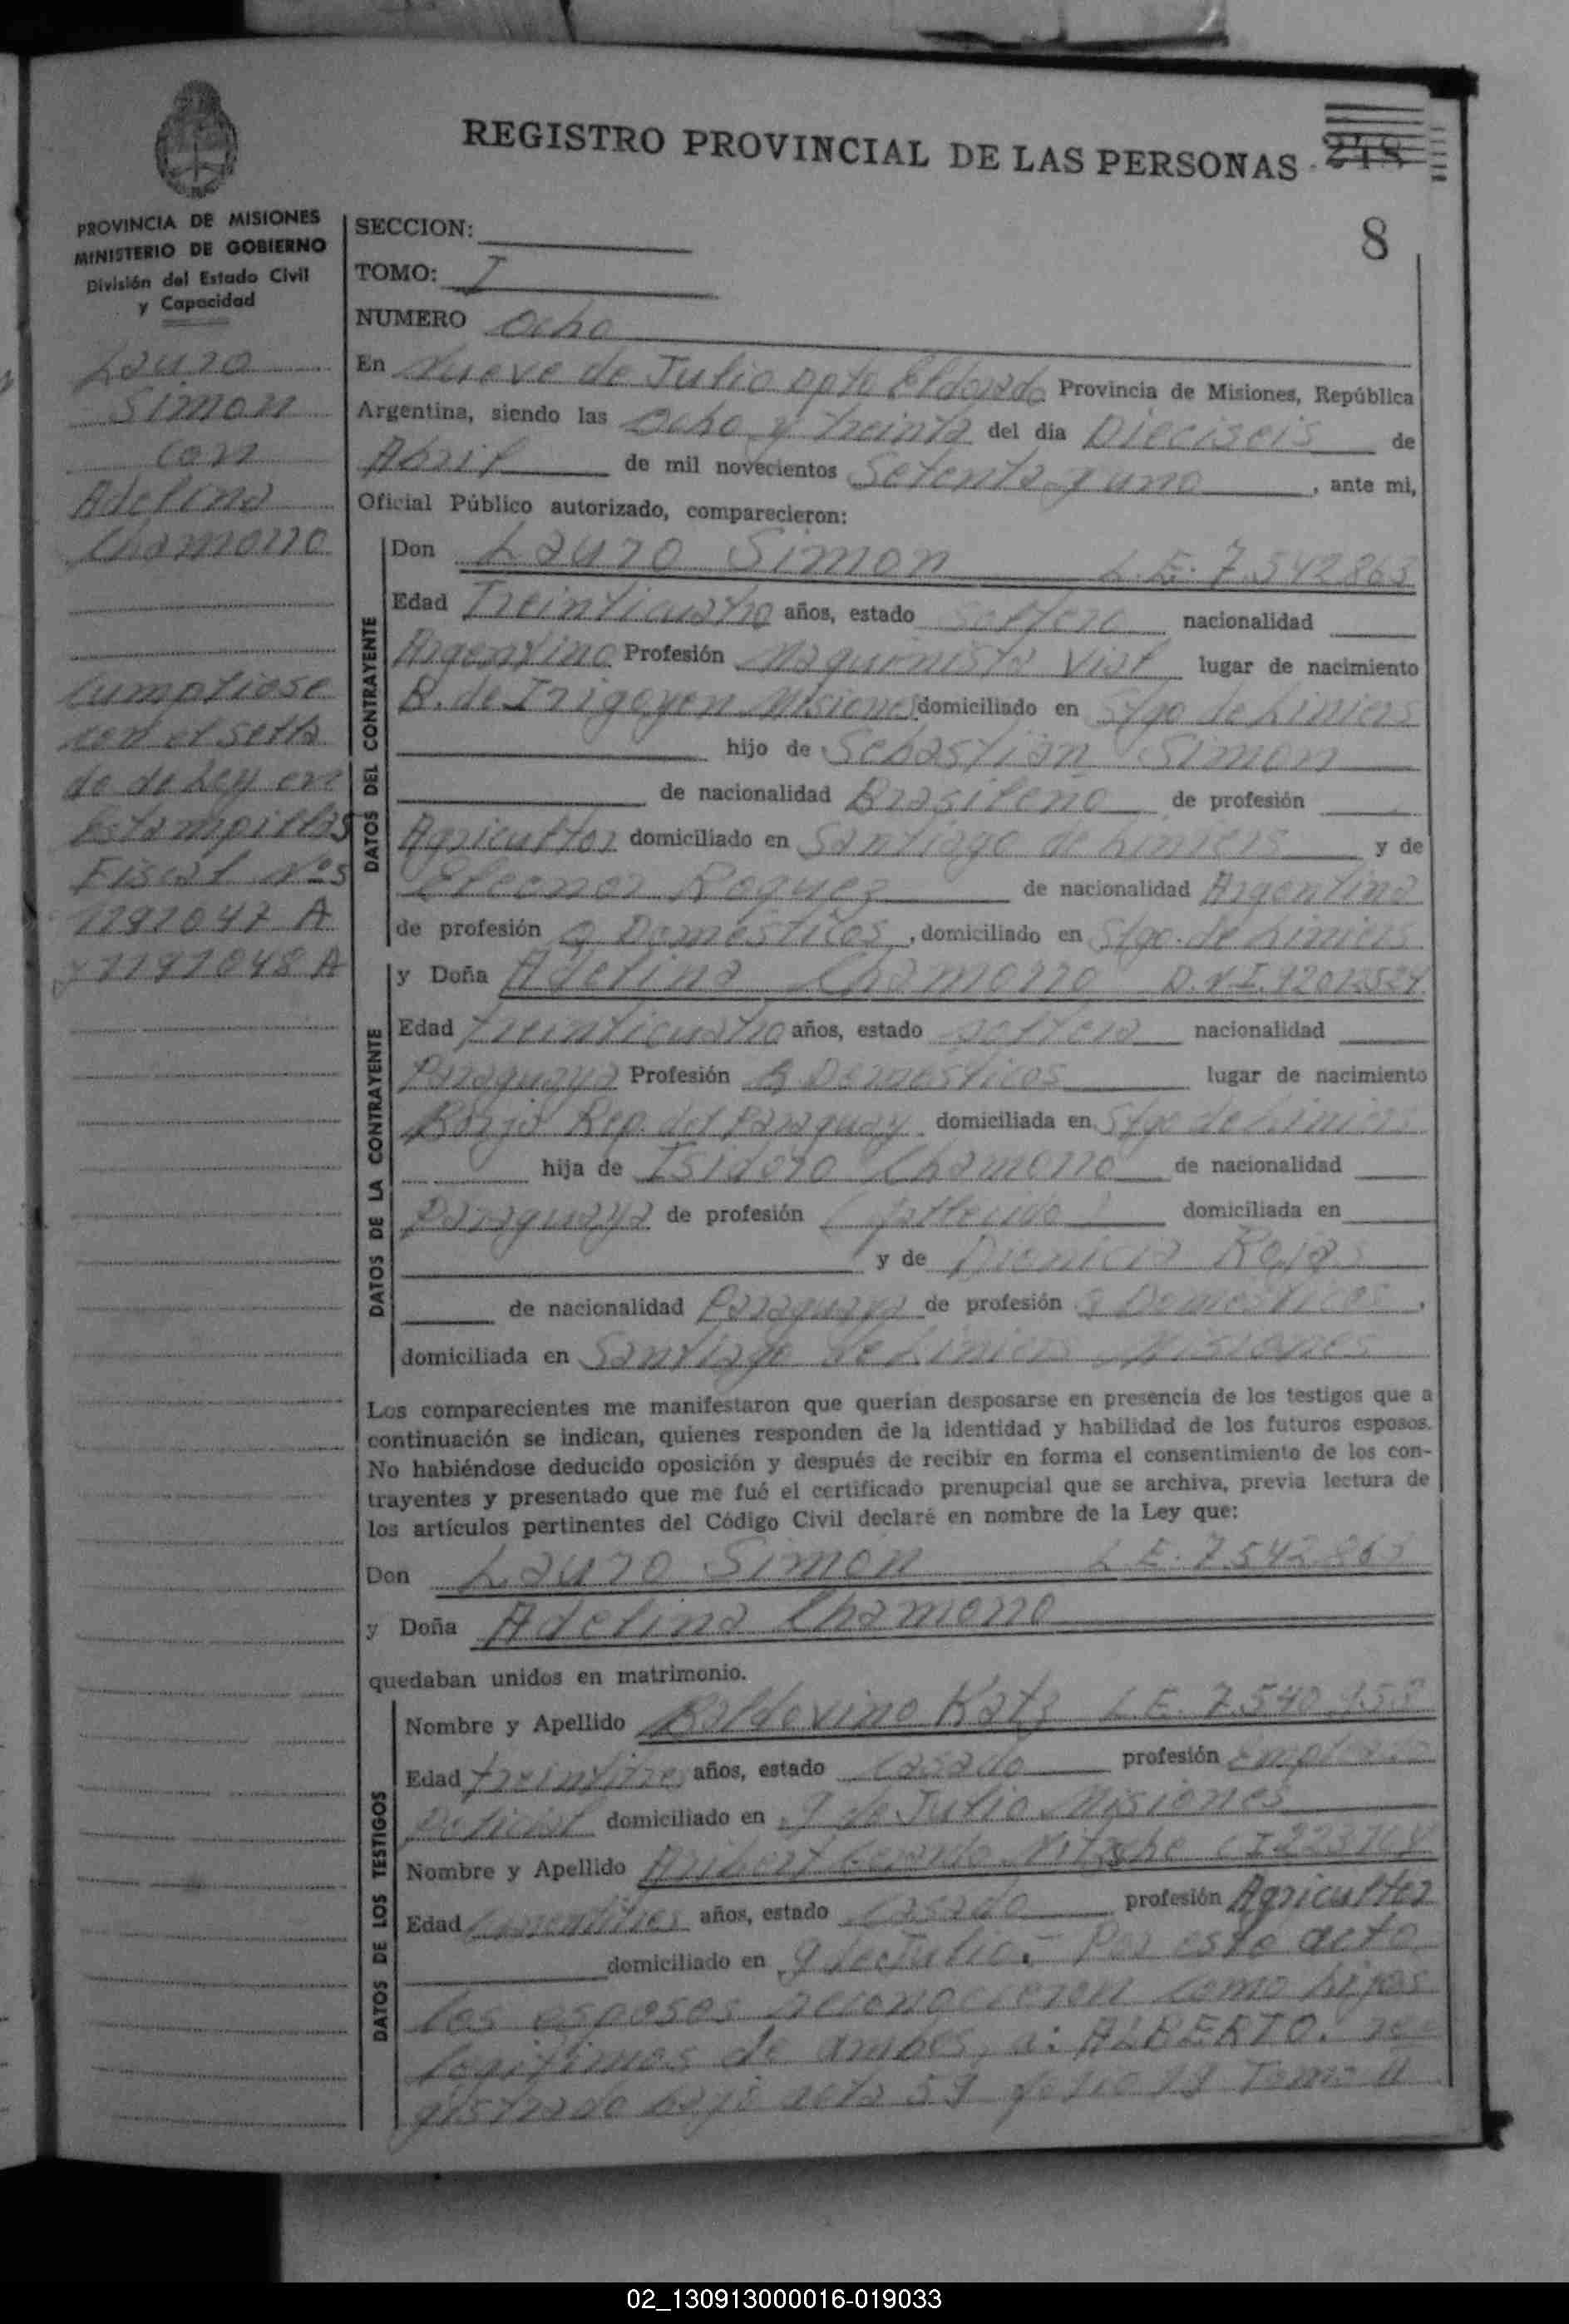 REGISTRO PROVINCIAL DE LAS PERSONAS
248
8
PROVINCIA DE MISIONES
MINISTERIO DE GOBIERNO
División del Estado Civil
y Capacidad
Lauro
Simon
con
Adelina
Chamorro
Cumpliose
con el sella
do de Ley en
Estampillas
Fiscal Nos
y
SECCION:
TOMO: I
NUMERO Ocho
En Nueve de Julio Dpto Eldorado Provincia de Misiones, República
Argentina, siendo las Ocho y treinta del día Dieciseis de
Abril de mil novecientos Setenta y uno, ante mi,
Oficial Público autorizado, comparecieron:
DATOS DEL CONTRAYENTE
Don Lauro Simon L.E. 7.542.863
Edad Treinticuatro años, estado soltero nacionalidad
Argentino Profesión Maquinista Vial lugar de nacimiento
B. de Irigoyen Misiones domiciliado en Stgo de Liniers
hijo de Sebastian Simon
de nacionalidad Brasileno de profesión
Agricultor domiciliado en Santiago de Liniers y de
Eleonor de nacionalidad Argentina
de profesión Q Domesticos, domiciliado en Stgo. de Liniers
DATOS DE LA CONTRAYENTE
y Doña Adelina Chamorro D.N.I.
Edad treinticuatro años, estado soltera nacionalidad
Paraguaya Profesión Q Domesticos lugar de nacimiento
Rep. del Paraguay domiciliada en Stgo de Liniers
hija de Isidoro Chamorro de nacionalidad
Paraguaya de profesión (fallecido) domiciliada en
y de Dionicia Rojas
de nacionalidad Paraguaya de profesión Q Domesticos,
domiciliada en Santiago de Liniers Misiones
Los comparecientes me manifestaron que querían desposarse en presencia de los testigos que a
continuación se indican, quienes responden de la identidad y habilidad de los futuros esposos.
No habiéndose deducido oposición y después de recibir en forma el consentimiento de los con-
trayentes y presentado que me fué el certificado prenupcial que se archiva, previa lectura de
los artículos pertinentes del Código Civil declaré en nombre de la Ley que:
Don Lauro Simon L.E. 7.542.863
y Doña Adelina Chamorro
quedaban unidos en matrimonio.
DATOS DE LOS TESTIGOS
Nombre y Apellido Baldovino Katz L.E.
Edad treintitres años, estado casado profesión Empleado
Policial domiciliado en 9 de Julio Misiones
Nombre y Apellido
Edad años, estado casado profesión Agricultor
domiciliado en 9 de Julio.- Por este acto
los esposos reconocieron como hijos
legitimos de ambos, a: ALBERTO. re
gistrado bajo acta 59 folio Tomo II
02_130913000016-019033